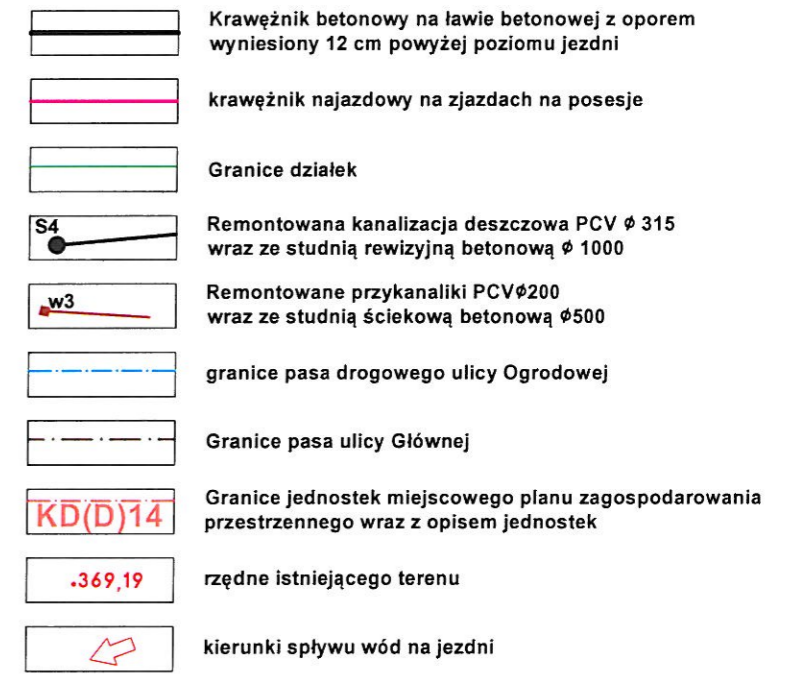 Krawężnik betonowy na ławie betonowej z oporem
wyniesiony 12 cm powyżej poziomu jezdni
krawężnik najazdowy na zjazdach na posesje
Granice działek
S4
Remontowana kanalizacja deszczowa PCV ϕ 315
wraz ze studnią rewizyjną betonową ϕ 1000
w3
Remontowane przykanaliki PCVϕ200
wraz ze studnią ściekową betonową ϕ500
granice pasa drogowego ulicy Ogrodowej
Granice pasa ulicy Głównej
KD(D)14
Granice jednostek miejscowego planu zagospodarowania
przestrzennego wraz z opisem jednostek
.369,19
rzędne istniejącego terenu
kierunki spływu wód na jezdni